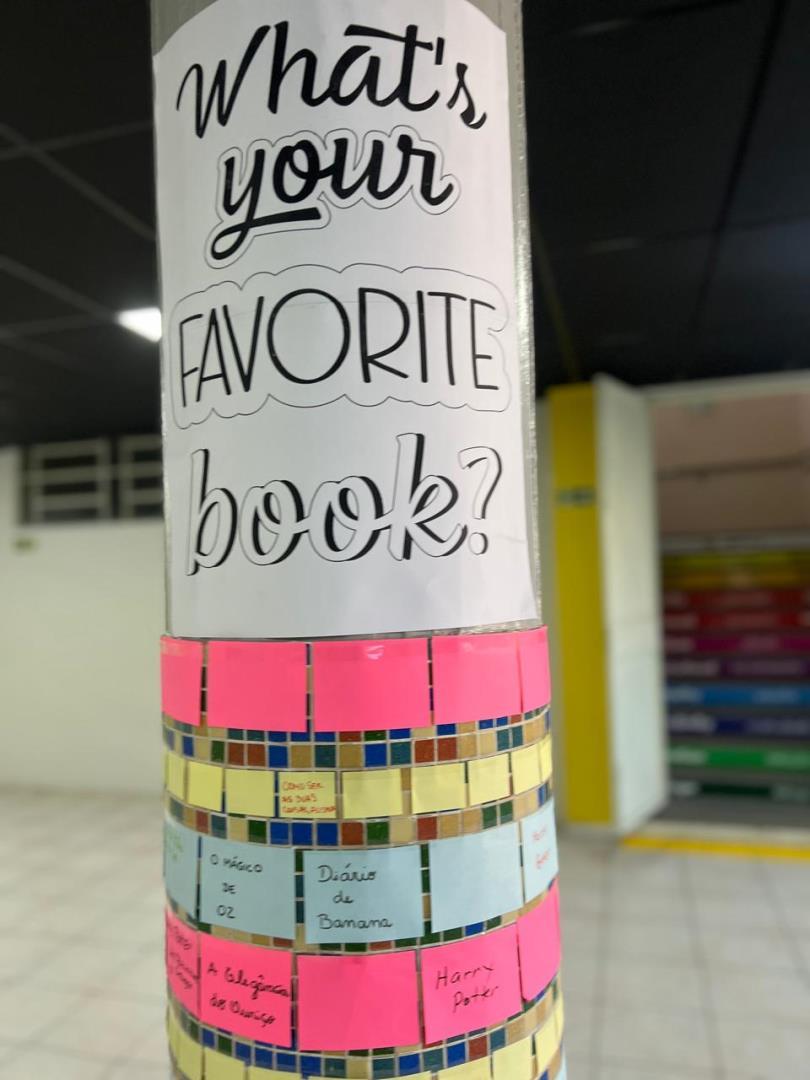 What's
your
FAVORITE
book?
COMO SER
AS DUAS
O MÁGICO
DE
OZ
Diário
de
Banana
A Elegância
do Ouriço
Harry
Potter